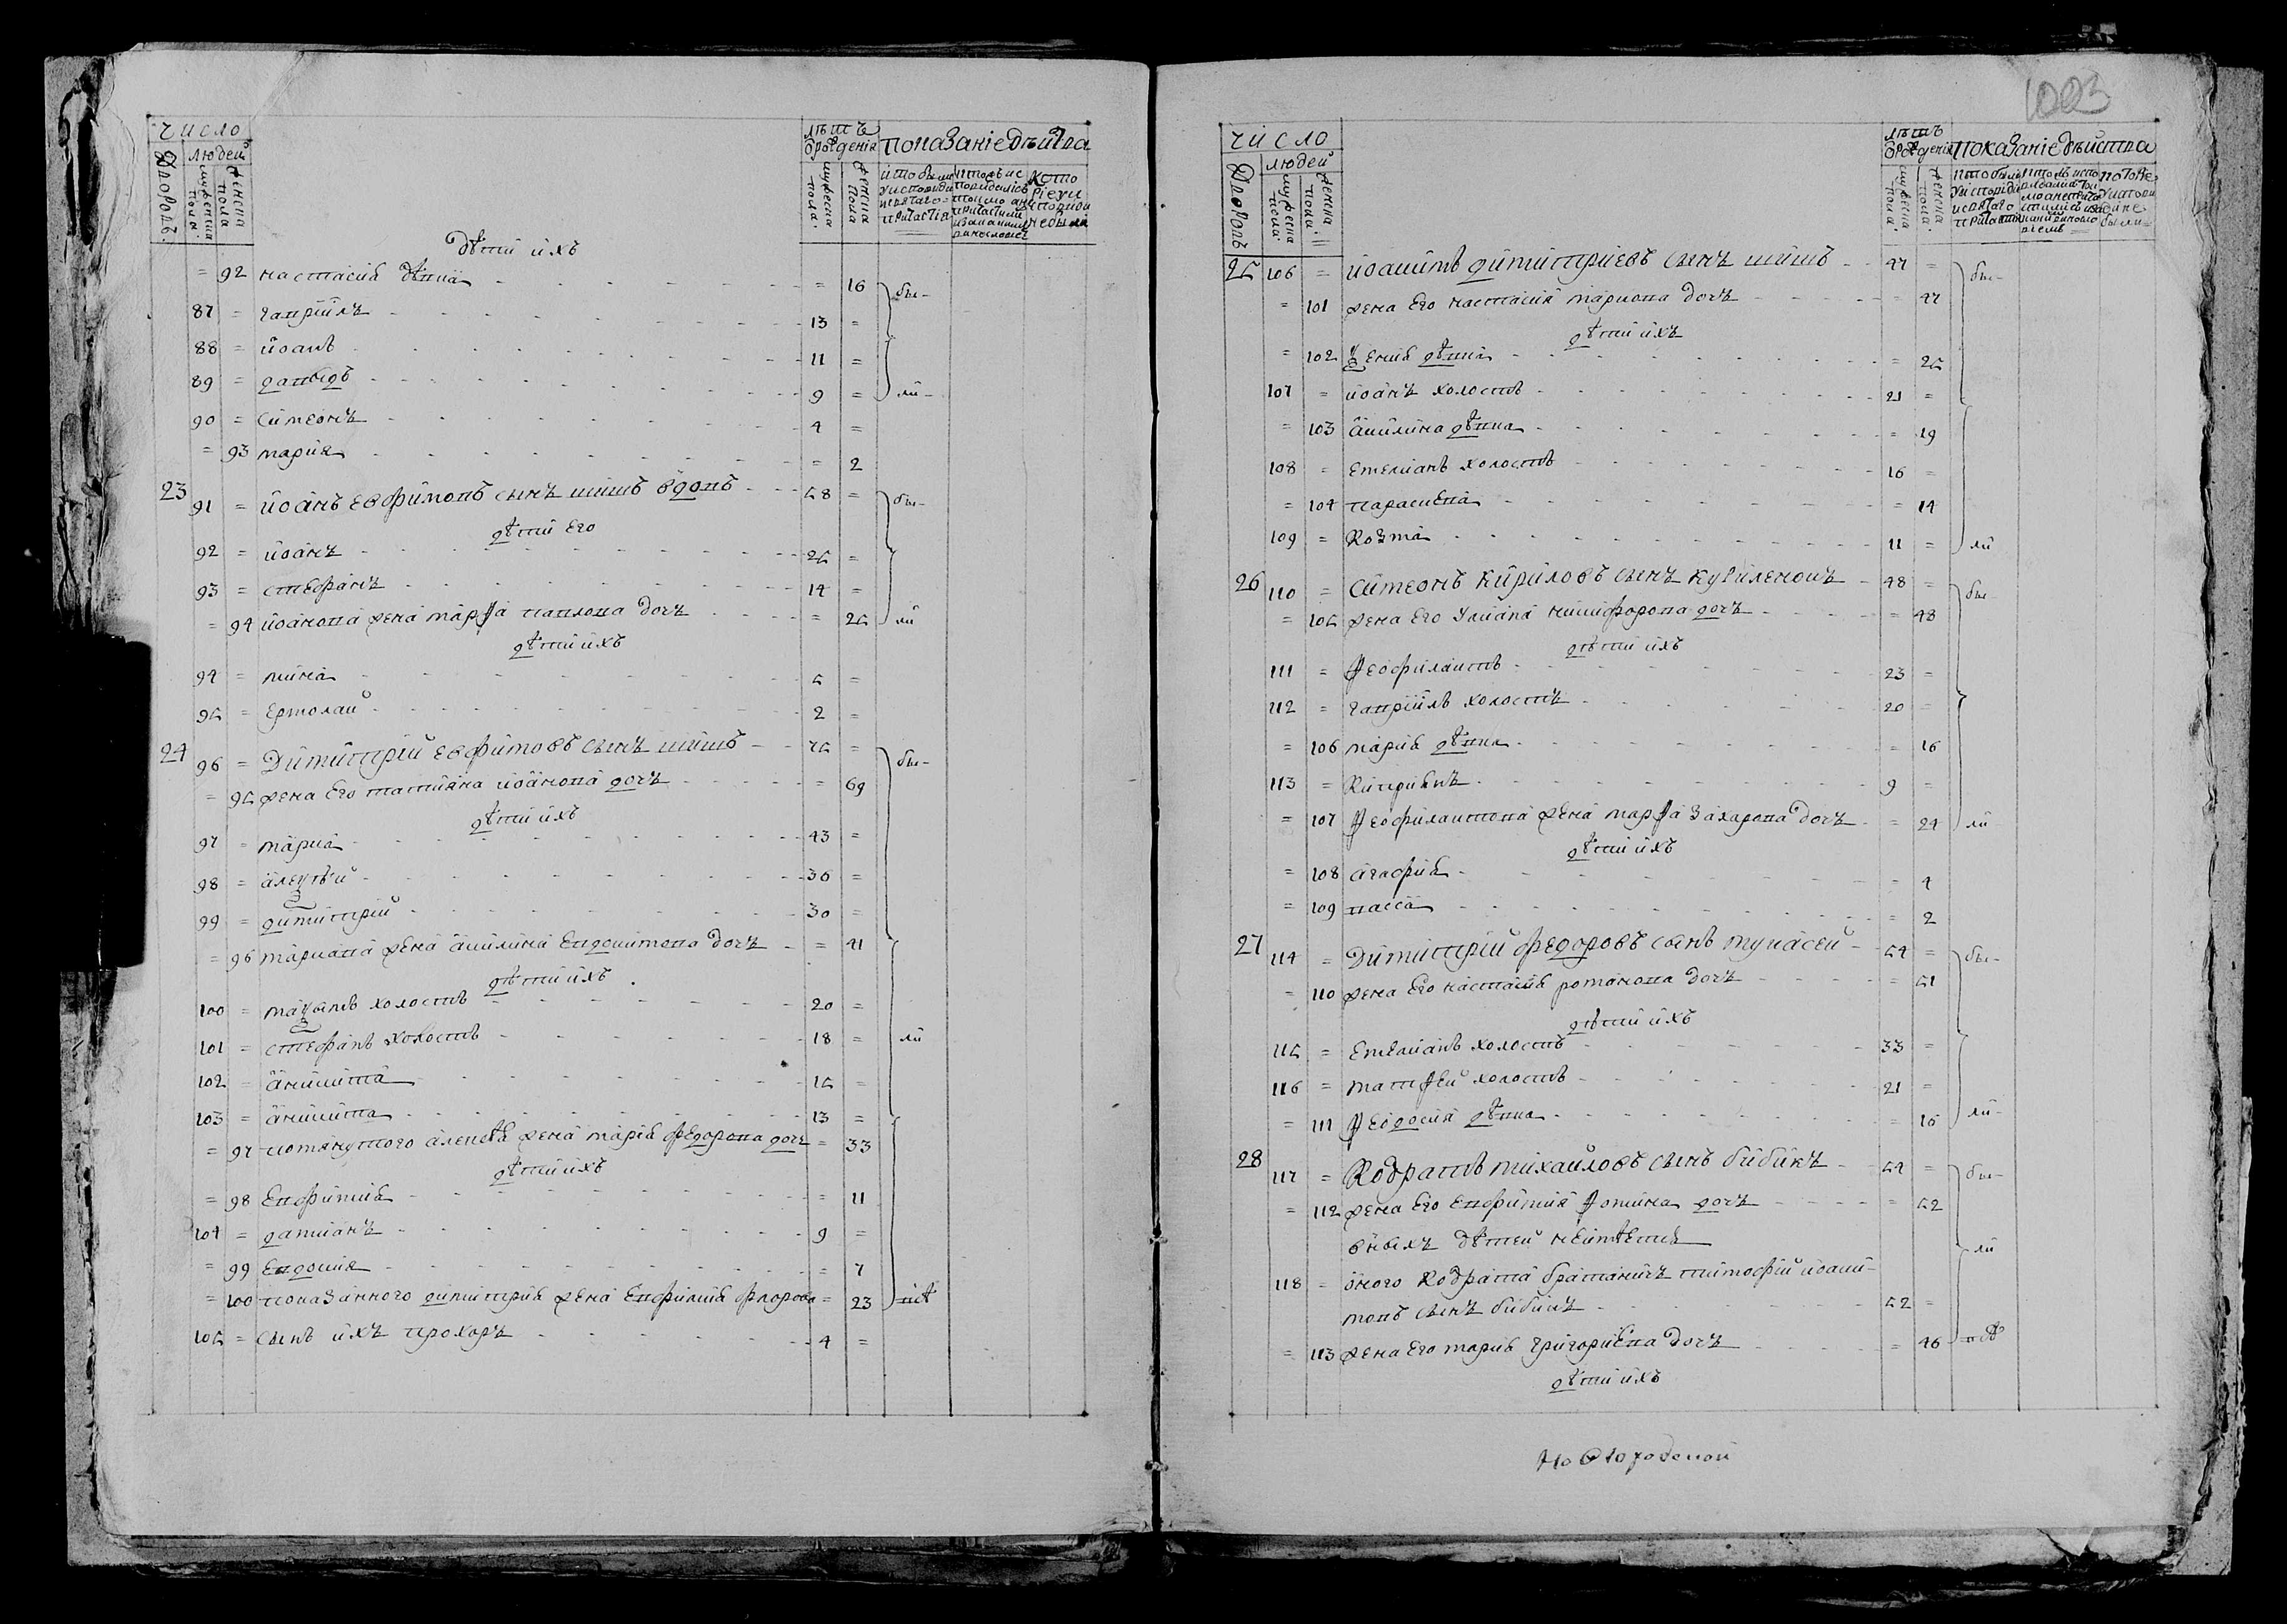 число
людей
Дворовъ
мужеска пола
женска пола
лѣтъ
ѿрожденія
мужеска пола
женска пола
показаніе дѣйства
Дѣти ихъ
= 92 настасія дѣвка - = 16 бы-
87 = гавріилъ - 13 =
88 = иоанъ - 11 =
89 = давыдъ - 9 = ли-
90 = симеонъ - 4 =
= 93 мария - = 2
23 91 = иоанъ евфимовъ сынъ шишъ вдовъ - 58 = бы-
дѣти его
92 = иоанъ - 25 =
93 = стефанъ - 14 =
= 94 иоанова жена марѳа павлова дочъ - = 25 ли
дѣти ихъ
94 = мина - 5 =
95 = ермолай - 2 =
24 96 = Димитрий евфимовъ сынъ шишъ - 75 = бы-
= 95 жена его татияна иоанова дочъ - = 69
дѣти ихъ
97 = марко - 43 =
98 = алеѯѣй - 36 =
99 = димитрий - 30 =
= 96 маркова жена акилина евдокимова дочъ - = 41
дѣти ихъ
100 = маѯымъ холостъ - 20 =
101 = стефанъ холостъ - 18 = ли
102 = аникита - 15 =
103 = аникита - 13 =
= 97 помянутого алексѣя жена мария федорова дочъ = 33
дѣти ихъ
= 98 евфимия - = 11
104 = дамианъ - 9 =
= 99 евдокия - = 7
= 100 показанного димитрия жена евфимия флорова = 23 всѣ
105 = сынъ ихъ прохоръ - 4 =
1003
число
людей
Дворовъ
мужеска пола
женска пола
лѣтъ
ѿрожденія
мужеска пола
женска пола
показаніе дѣйства
25 106 = иоакимъ димитриевъ сынъ шишъ - 47 = бы-
= 101 жена его настасия маркова дочъ - = 47
дѣти ихъ
= 102 ѯения дѣвка - = 25
107 = иоанъ холостъ - 21 =
= 103 акилина дѣвка - = 19
108 = емелианъ холостъ - 16 =
= 104 параскева - = 14
109 = козма - 11 = ли
26 110 = симеонъ кириловъ сынъ - 48 = бы-
= 105 жена его улиана никифорова дочъ - = 48
дѣти ихъ
111 = ѳеофилактъ - 23 =
112 = гавриилъ холостъ - 20 =
= 106 мария дѣвка - = 16
113 = киприянъ - 9 =
= 107 ѳеофилактова жена марѳа захарова дочъ - = 24 ли
дѣти ихъ
= 108 агафия - = 4
= 109 васса - = 2
27 114 = Димитрий федоровъ сынъ мукасей - 54 = бы-
= 110 жена его настасия романова дочъ - = 51
дѣти ихъ
115 = емелианъ холостъ - 33 =
116 = матѳей холостъ - 21 =
= 111 ѳеодосия дѣвка - = 16 ли-
28 117 = Кодратъ михайловъ сынъ бибикъ - 54 = бы-
= 112 жена его евфимия ѳомина дочъ - = 52
оныхъ дѣтей неимѣется ли
118 = оного кодрата братаничъ тимофѣй иоаки-
мовъ сынъ бибикъ - 52 =
= 113 жена его мария григориева дочъ - = 46 всѣ
дѣти ихъ